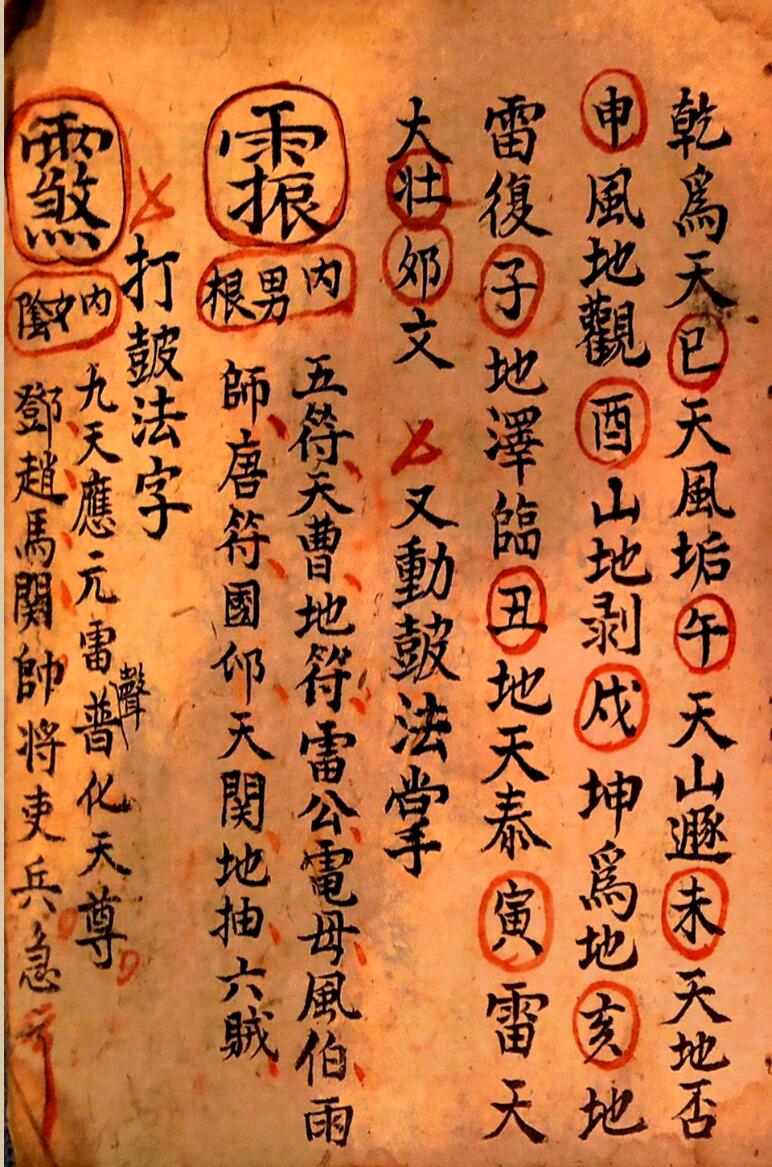 乾爲天巳天風垢午天山遯未天地否
申風地觀酉山地剥戌坤爲地亥地
雷復子地澤臨丑地天泰寅雷天
大壯夘文 又動皷法掌
内男根
五符天曹地符雷公電母風伯雨
師唐符國仰天関地抽六賊
打皷法字
内女陰
九天應元雷聲普化天尊
鄧趙馬関帥将吏兵急